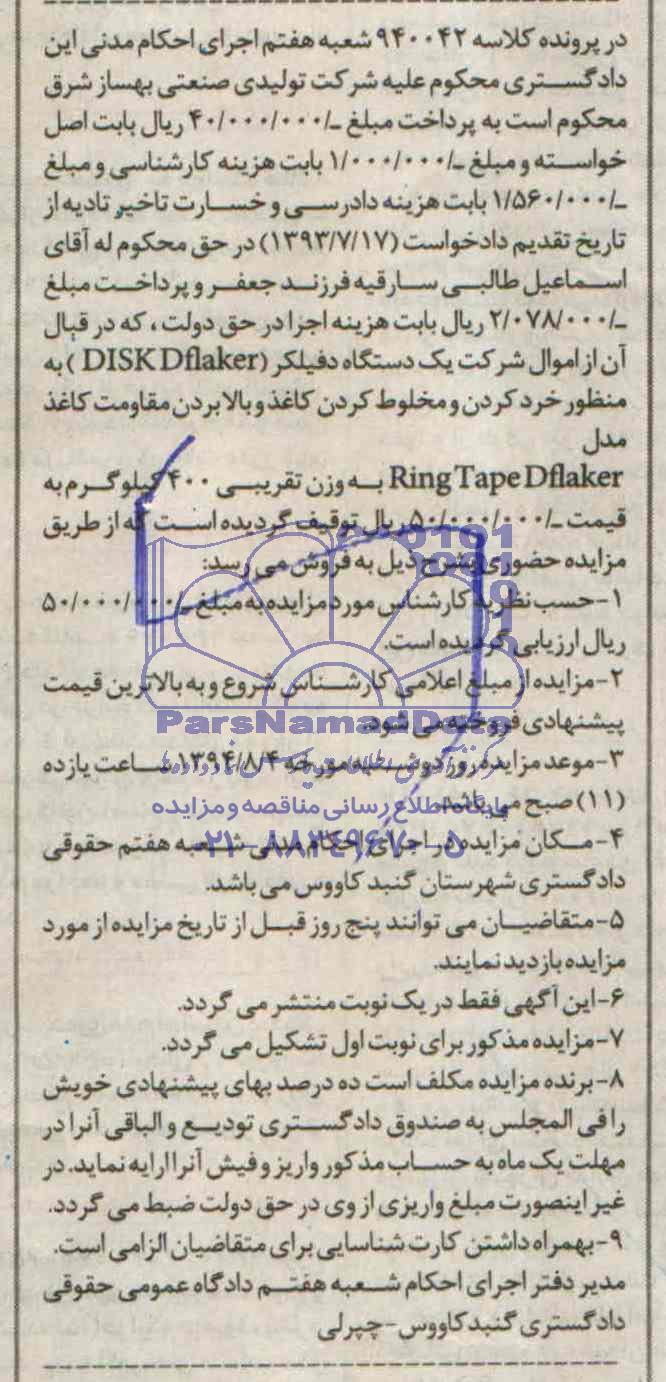 در پرونده کلاسه ۹۴۰۰۴۲ شعبه هفتم اجرای احکام مدنی این
دادگستری محکوم علیه شرکت تولیدی صنعتی بهساز شرق
محکوم است به پرداخت مبلغ ـ/۴۰/۰۰۰/۰۰۰ ریال بابت اصل
خواسته و مبلغ ـ/۱/۰۰۰/۰۰۰ بابت هزینه کارشناسی و مبلغ
ـ/۱/۵۶۰/۰۰۰ بابت هزینه دادرسی و خسارت تاخیر تادیه از
تاریخ تقدیم دادخواست (۱۳۹۳/۷/۱۷) در حق محکوم له آقای
اسماعیل طالبی سارقیه فرزند جعفر و پرداخت مبلغ
ـ/۲/۰۷۸/۰۰۰ ریال بابت هزینه اجرا در حق دولت، که در قبال
آن از اموال شرکت یک دستگاه دفیلکر (DISK Dflaker) به
منظور خرد کردن و مخلوط کردن کاغذ و بالا بردن مقاومت کاغذ
مدل
Ring Tape Dflaker به وزن تقریبی ۴۰۰ کیلوگرم به
قیمت ـ/۵۰/۰۰۰/۰۰۰ ریال توقیف گردیده است که از طریق
مزایده حضوری بشرح ذیل به فروش می رسد:
۱-حسب نظریه کارشناس مورد مزایده به مبلغ ـ/۵۰/۰۰۰/۰۰۰
ریال ارزیابی گردیده است.
۲-مزایده از مبلغ اعلامی کارشناس شروع و به بالاترین قیمت
پیشنهادی فروخته می شود.
ParsNamadData
۳-موعد مزایده روز دوشنبه مورخه ۱۳۹۴/۸/۴ ساعت یازده
(۱۱) صبح می باشد.
پایگاه اطلاع رسانی مناقصه و مزایده
۰۲۱-۸۸۳۴۹۶۷۰-۵
۴-مکان مزایده در اجرای احکام مدنی شعبه هفتم حقوقی
دادگستری شهرستان گنبد کاووس می باشد.
۵-متقاضیان می توانند پنج روز قبل از تاریخ مزایده از مورد
مزایده بازدید نمایند.
۶-این آگهی فقط در یک نوبت منتشر می گردد.
۷-مزایده مذکور برای نوبت اول تشکیل می گردد.
۸-برنده مزایده مکلف است ده درصد بهای پیشنهادی خویش
را فی المجلس به صندوق دادگستری تودیع و الباقی آنرا در
مهلت یک ماه به حساب مذکور واریز و فیش آنرا ارایه نماید. در
غیر اینصورت مبلغ واریزی از وی در حق دولت ضبط می گردد.
۹-بهمراه داشتن کارت شناسایی برای متقاضیان الزامی است.
مدیر دفتر اجرای احکام شعبه هفتم دادگاه عمومی حقوقی
دادگستری گنبد کاووس-چپرلی